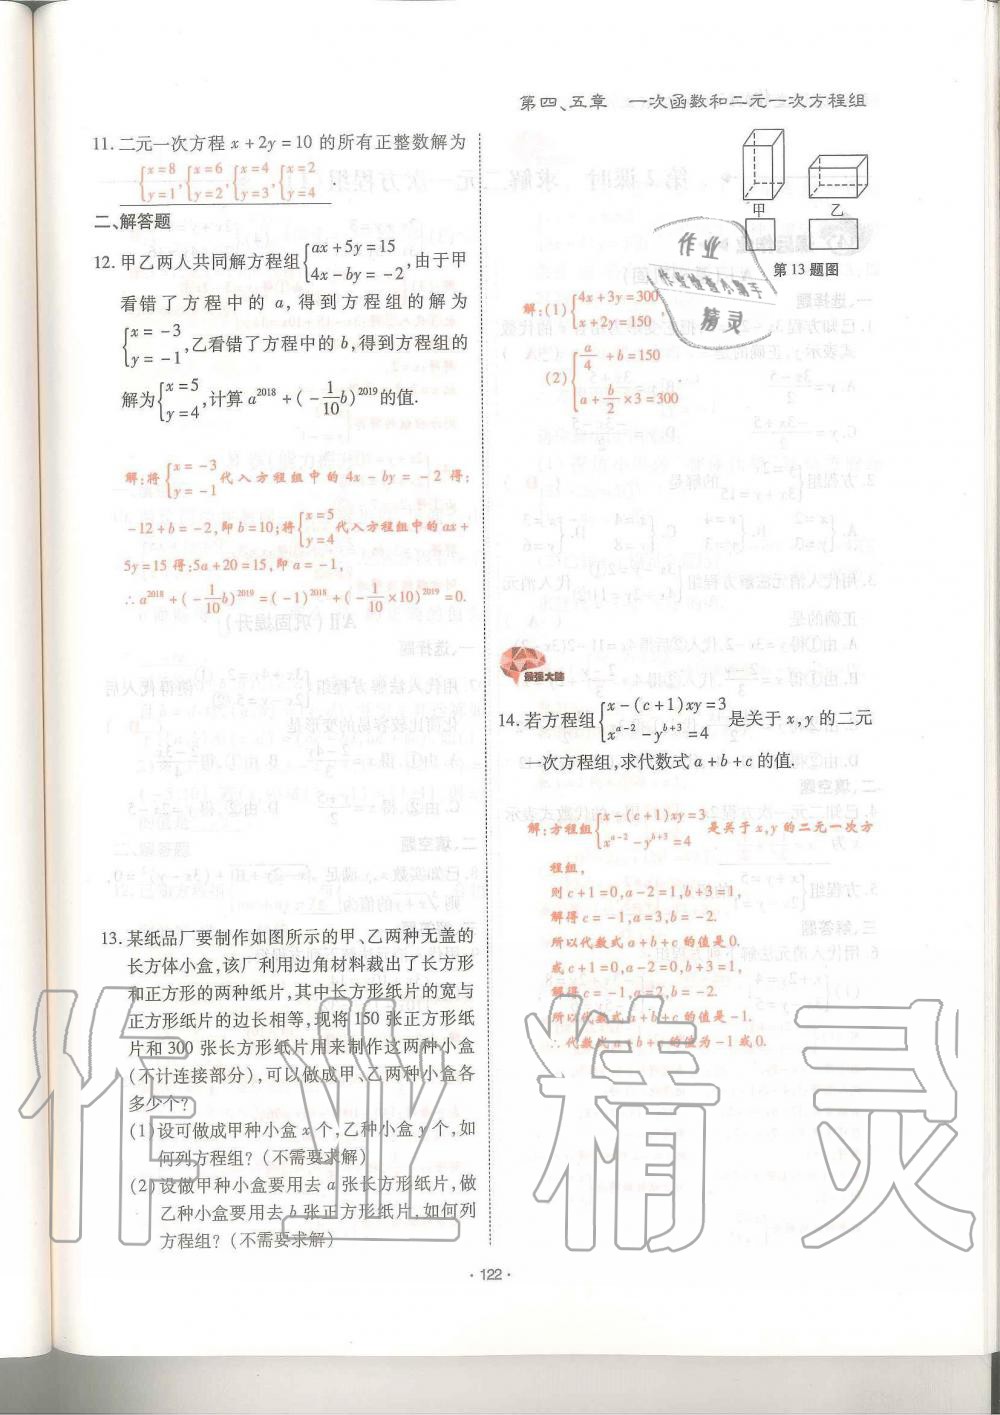 第四、五章 一次函数和二元一次方程组
11.二元一次方程 x+2y=10 的所有正整数解为
{x=8 y=1, {x=6 y=2, {x=4 y=3, {x=2 y=4 .
二、解答题
12.甲乙两人共同解方程组{ax+5y=15 4x-by=-2,由于甲
看错了方程中的 a,得到方程组的解为
{x=-3 y=-1,乙看错了方程中的 b,得到方程组的
解为{x=5 y=4,计算 a^2018+(-1/10 b)^2019的值.
解:将{x=-3 y=-1代入方程组中的 4x-by=-2 得:
-12+b=-2,即 b=10;将{x=5 y=4代入方程组中的 ax+
5y=15 得:5a+20=15,即 a=-1,
∴a^2018+(-1/10 b)^2019=(-1)^2018+(-1/10×10)^2019=0.
13.某纸品厂要制作如图所示的甲、乙两种无盖的
长方体小盒,该厂利用边角材料裁出了长方形
和正方形的两种纸片,其中长方形纸片的宽与
正方形纸片的边长相等,现将 150 张正方形纸
片和 300 张长方形纸片用来制作这两种小盒
(不计连接部分),可以做成甲、乙两种小盒各
多少个?
(1)设可做成甲种小盒 x 个,乙种小盒 y 个,如
何列方程组?(不需要求解)
(2)设做甲种小盒要用去 a 张长方形纸片,做
乙种小盒要用去 b 张正方形纸片,如何列
方程组?(不需要求解)
甲 乙
第13题图
作业
作业检查小帮手
精灵
解:(1){4x+3y=300 x+2y=150,
(2){a/4+b=150 a+b/2×3=300
最强大脑
14.若方程组{x-(c+1)xy=3 x^(a-2)-y^(b+3)=4 是关于 x,y 的二元
一次方程组,求代数式 a+b+c 的值.
解:方程组{x-(c+1)xy=3 x^(a-2)-y^(b+3)=4 是关于 x,y 的二元一次方
程组,
则 c+1=0,a-2=1,b+3=1,
解得 c=-1,a=3,b=-2.
所以代数式 a+b+c 的值是 0.
或 c+1=0,a-2=0,b+3=1,
解得 c=-1,a=2,b=-2.
所以代数式 a+b+c 的值是-1.
∴代数式 a+b+c 的值为-1 或 0.
作业精灵
·122·